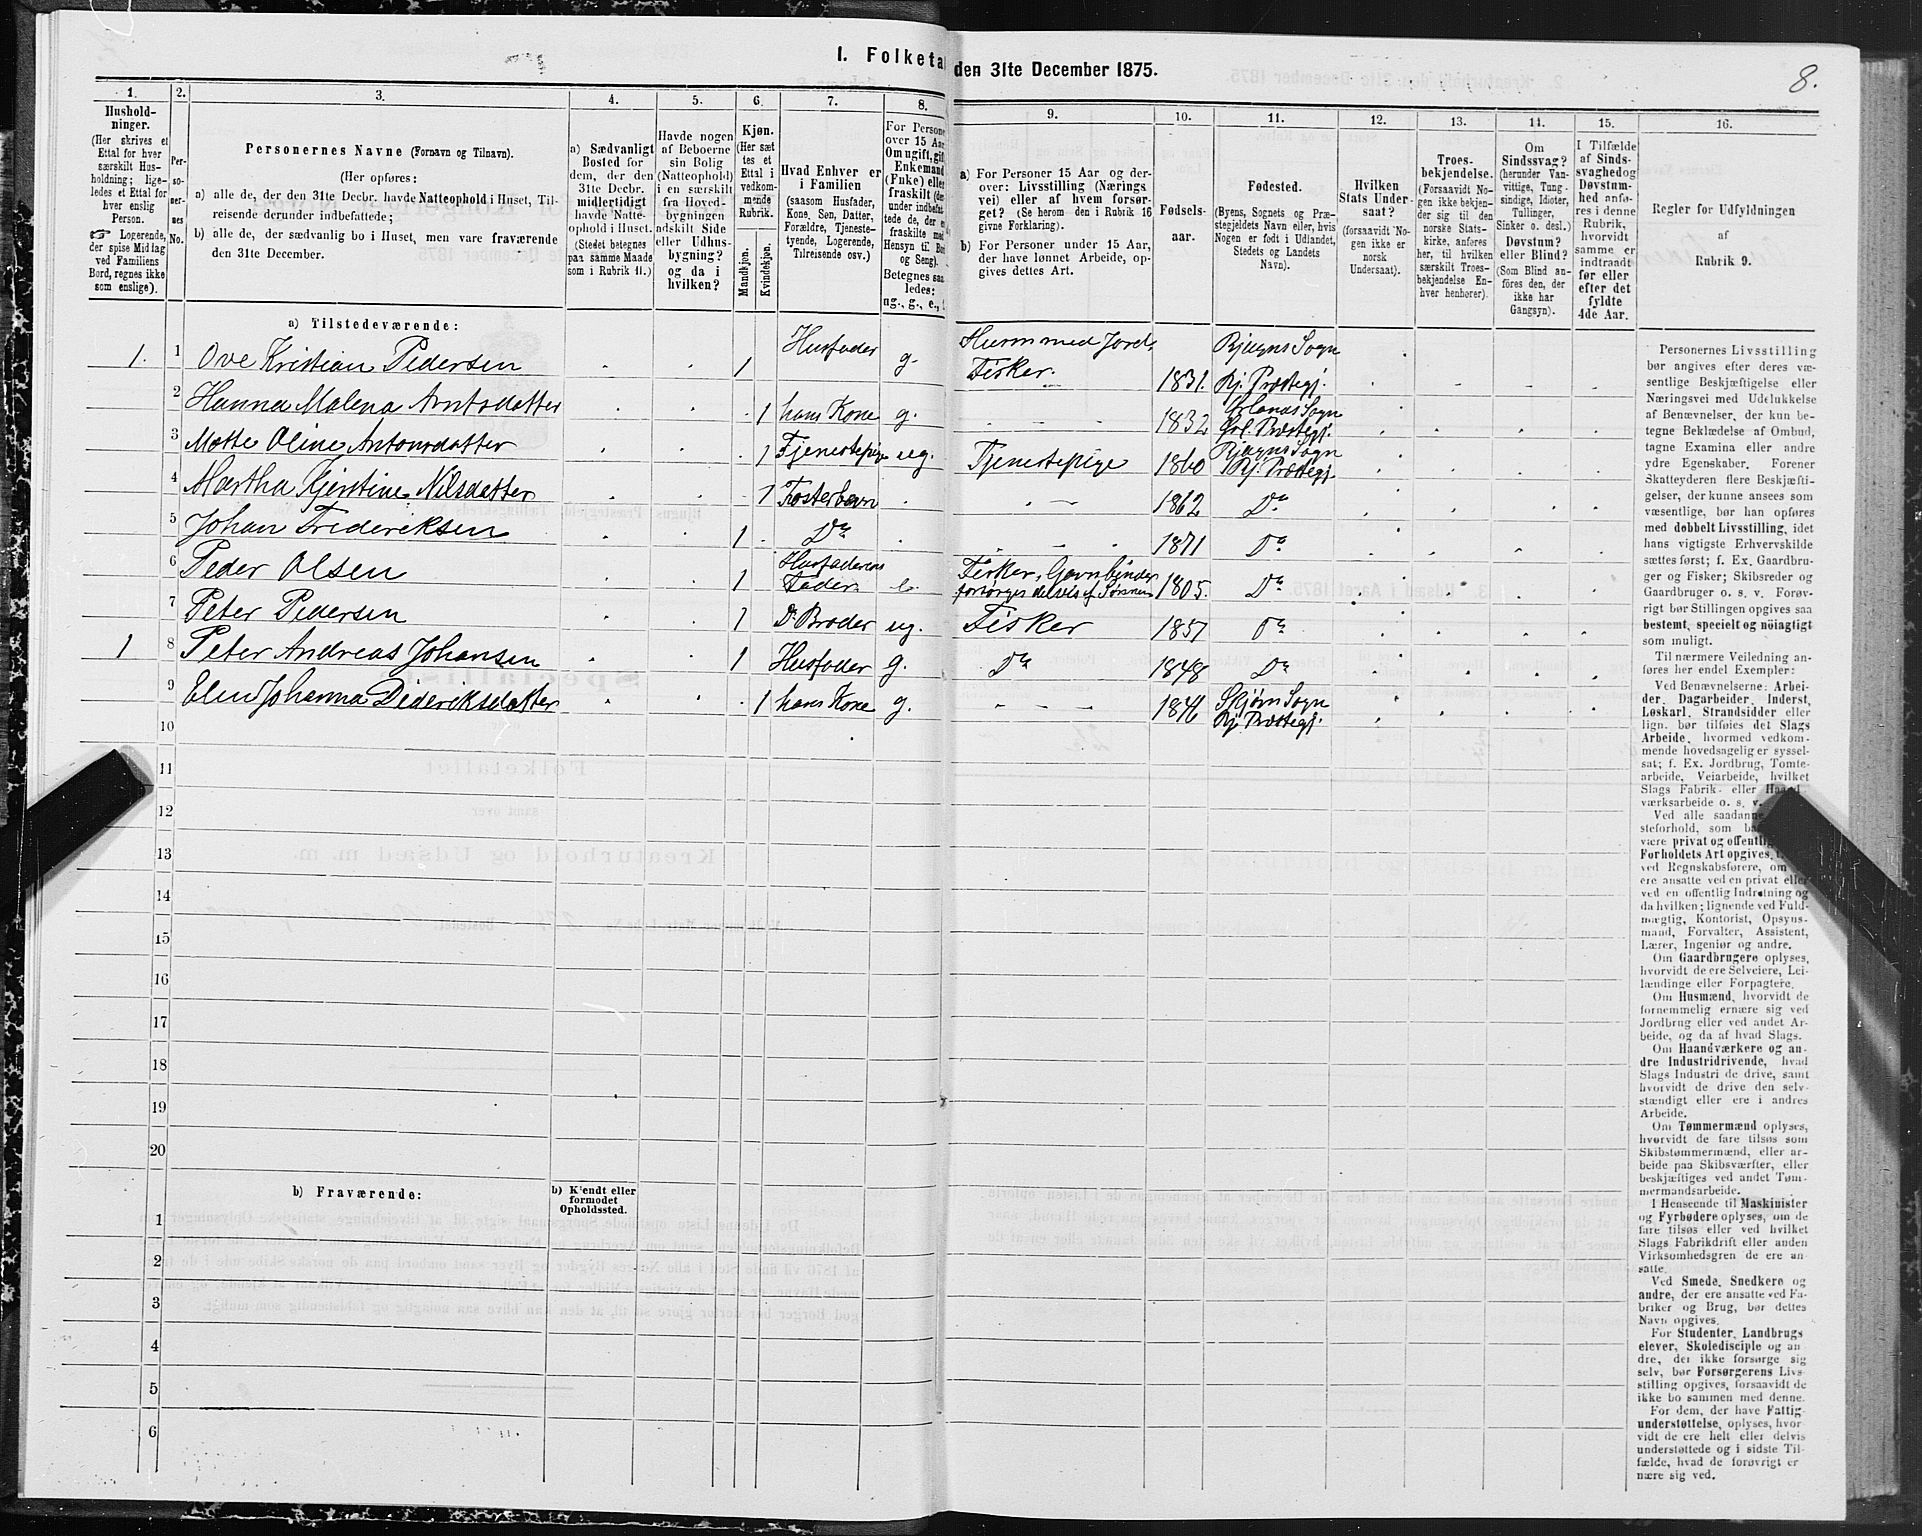 8.
I. Folketal den 31te December 1875.
1.
2.
3.
4.
5.
6.
7.
8.
9.
10.
11.
12.
13.
14.
15.
16.
Hushold-
ninger.
(Her skrives et
Ettal for hver
særskilt Hus-
holdning; lige-
ledes et Ettal for
hver enslig
Person.
☞ Logerende,
der spise Middag
ved Familiens
Bord, regnes ikke
som enslige).
Per-
so-
ner-
nes
No.
Personernes Navne (Fornavn og Tilnavn).
(Her opføres:
a) alle de, der den 31te Decbr. havde Natteophold i Huset, Til-
reisende derunder indbefattede;
b) alle de, der sædvanlig bo i Huset, men vare fraværende
den 31te December.
a) Sædvanligt
Bosted for
dem, der den
31te Decbr.
midlertidigt
havde Natte-
ophold i Huset.
(Stedet betegnes
paa samme Maade
som i Rubrik 11.)
Havde nogen
af Beboerne
sin Bolig
(Natteophold)
i en særskilt
fra Hoved-
bygningen
adskilt Side
eller Udhus-
bygning?
og da i
hvilken?
Kjøn.
(Her sæt
tes et
Ettal i
vedkom-
mende
Rubrik.
Mandkjøn.
Kvindekjøn.
Hvad Enhver er
i Familien
(saasom Husfader,
Kone, Søn, Datter,
Forældre, Tjeneste-
tyende, Logerende,
Tilreisende osv.)
For Persone
over 15 Aar
Om ugift, gift
Enkemand
(Enke) eller
fraskilt (der-
under indbefat-
tede de, der e
fraskilte med
Hensyn til Bo
og Seng).
Betegnes saa
ledes:
ug., g., e.,
a) For Personer 15 Aar og der-
over: Livsstilling (Nærings
vei) eller af hvem forsør-
get? (Se herom den i Rubrik 16
givne Forklaring).
b) For Personer under 15 Aar,
der have lønnet Arbeide, op-
gives dettes Art.
Fødsels-
aar.
Fødested.
(Byens, Sognets og Præ-
stegjeldets Navn eller, hvis
Nogen er født i Udlandet,
Stedets og Landets
Navn).
Hvilken
Stats Under
saat?
(forsaavidt No-
gen ikke er
norsk
Undersaat).
Troes-
bekjendelse.
(Forsaavidt No-
gen ikke bekjen-
der sig til den
norske Stats-
kirke, anføres
her, til hvilken
særskilt Troes-
bekjendelse En-
hver henhører).
Om
Sindssvag?
(herunder Van-
vittige, Tung-
sindige, Idioter,
Tullinger,
Sinker o. desl.)
Døvstum?
eller Blind?
(Som Blind an-
føres den, der
ikke har
Gangsyn).
I Tilfælde
af Sinds-
svaghed og
Døvstum-
hed anfø-
res i denne
Rubrik,
hvorvidt
samme er
indtraadt
før eller
efter det
fyldte
4de Aar.
Regler for Udfyldningen
af
Rubrik 9.
a) Tilstedeværende:
1. 1 Ove Kristian Pedersen 1 Husfader g. Husm. med Jord, Fisker. 1831. Bjugns Sogn Bj. Præstegj.
2 Hanna Malena Arntsdatter 1 hans Kone g. 1832 Ørlands Sogn Ørl. Præstegj.
3 Mette Oline Antonsdatter 1 Tjenestepige ug. Tjenestepige 1860 Bjugns Sogn Bj. Præstegj.
4 Martha Kjerstine Nilsdatter 1 Fosterbarn 1862 Do
5 Johan Frederiksen 1 Do 1871 Do
6 Peder Olsen 1 Husfaderens Fader e. Fisker, Garnbinder forsørges delvis af Sønnen 1805. Do
7 Peter Pedersen 1 Do Broder ug. Fisker 1851 Do
1 8 Peter Andreas Johansen 1 Husfader g. Do 1848 Do
9 Elen Johanna Didriksdatter 1 hans Kone g. 1846 Skjørn Sogn Bj. Præstegj.
10
11
12
13
14
15
16
17
18
19
20
b) Fraværende:
b) Kjendt eller
formodet
Opholdssted.
1
2
3
4
5
6
Personernes Livsstilling
bør angives efter deres væ-
sentlige Beskjæftigelse eller
Næringsvei med Udelukkelse
af Benævnelser, der kun be-
tegne Beklædelse af Ombud,
tagne Examina eller andre
ydre Egenskaber. Forener
Skatteyderen flere Beskjæfti-
gelser, der kunne ansees som
væsentlige, bør han opføres
med dobbelt Livsstilling, idet
hans vigtigste Erhvervskilde
sættes først; f. Ex. Gaardbru-
ger og Fisker; Skibsreder og
Gaardbruger o. s. v. Forøv-
rigt bør Stillingen opgives saa
bestemt, specielt og nöiagtigt
som muligt.
Til nærmere Veiledning an-
føres her endel Exempler:
Ved Benævnelserne: Arbei-
der, Dagarbeider, Inderst,
Løskarl, Strandsidder eller
lign. bør tilføies det Slags
Arbeide, hvormed vedkom-
mende hovedsagelig er syssel-
sat; f. Ex. Jordbrug, Tomte-
arbeide, Veiarbeide, hvilket
Slags Fabrik- eller Haand
værksarbeide o. s. v.
Ved alle saadanne
steforhold, som
være privat og offentlig
Forholdets Art opgives,
ved Regnskabsførere, om
ere ansatte ved en privat eller
ved en offentlig Indretning og
da hvilken; lignende ved Fuld-
mægtig, Kontorist, Opsyns-
mand, Forvalter, Assistent,
Lærer, Ingeniør og andre.
Om Gaardbrugere oplyses,
hvorvidt de ere Selveiere, Lei-
lændinge eller Forpagtere.
Om Husmænd, hvorvidt de
fornemmelig ernære sig ved
Jordbrug eller ved andet Ar-
beide, og da af hvad Slags.
Om Haandværkere og an-
dre Industridrivende, hvad
Slags Industri de drive, samt
hvorvidt de drive den selv-
stændigt eller ere i andres
Arbeide.
Om Tømmermænd oplyses,
hvorvidt de fare tilsøs som
Skibstømmermænd, eller ar-
beide paa Skibsværfter, eller
beskjæftiges ved andet Tøm-
mermandsarbeide.
I Henseende til Maskinister
og Fyrbødere oplyses, om de
fare tilsøs eller ved hvilket
Slags Fabrikdrift eller anden
Virksomhedsgren de ere an-
satte.
Ved Smede, Snedkere og
andre, der ere ansatte ved Fa-
briker og Brug, bør dettes
Navn opgives.
For Studenter, Landbrugs
elever, Skoledisciple og an
dre, der ikke forsørge sig
selv, bør Forsørgerens Livs-
stilling opgives, forsaavidt de
ikke bo sammen med denne.
For dem, der have Fattig-
understøttelse, oplyses, hvor-
vidt de ere helt eller delvis
understøttede og i sidste Til-
fælde, hvad de forøvrigt er
nære sig ved.